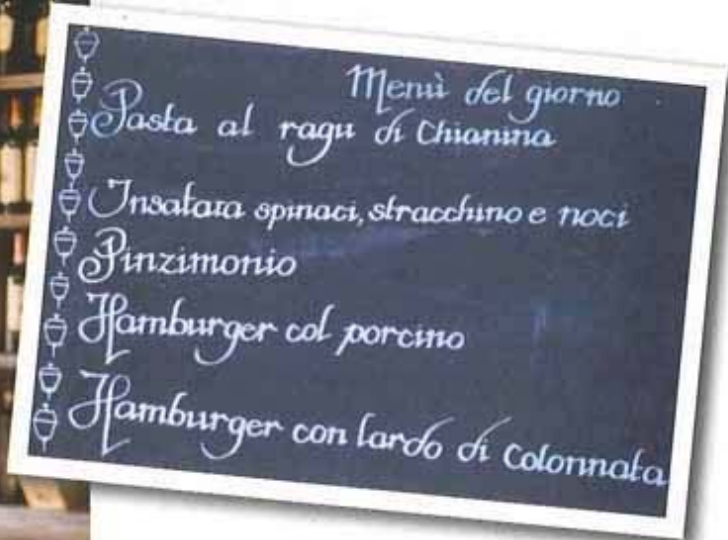 Menù del giorno
Pasta al ragu di Chianina
Insalata spinaci, stracchino e noci
Pinzimonio
Hamburger col porcino
Hamburger con lardo di Colonnata